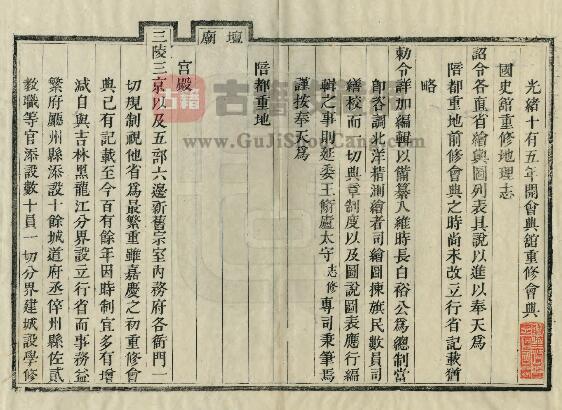 壇廟
光緒十有五年開會典館重修會典
國史館重修地理志
詔令各直省繪輿圖列表具說以進以奉天爲
陪都重地前修會典之時尚未改立行省記載猶
略
勅令詳加編輯以備纂入維時長白裕公爲總制當
即咨調北洋精測繪者司繪圖揀旗民數員司
繕校而一切典章制度以及圖說圖表應行編
輯之事則延委王衛廬太守志修專司秉筆焉
謹按奉天爲
陪都重地
宮殿
三陵三京以及五部六邊新舊宗室內務府各衙門一
切規制視他省爲最繁重雖嘉慶之初重修會
典已有記載至今百有餘年因時制宜多有增
減自與吉林黑龍江分界設立行省而事務益
繁府廳州縣添設十餘城道府丞倅州縣佐貳
教職等官添設數十員一切分界建城設學修
古籍
www.GuJiShouCang.com